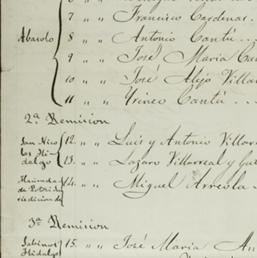 7 " " Francisco Cardenas.
Abasolo 8 " " Antonio Cantú . .
9 " " José Maria Ca
10 " " José Alejo Villa
11 " " Urineo Cantú . . .
2ª Remision
San Nico
las Hi
dalgo 12. " " Luis y Antonio Villar
13. " " Lazaro Villarreal y Gu
14. " " Miguel Arreola
3ª Remision
Sabinas
Hidalgo 15. " " José Maria An